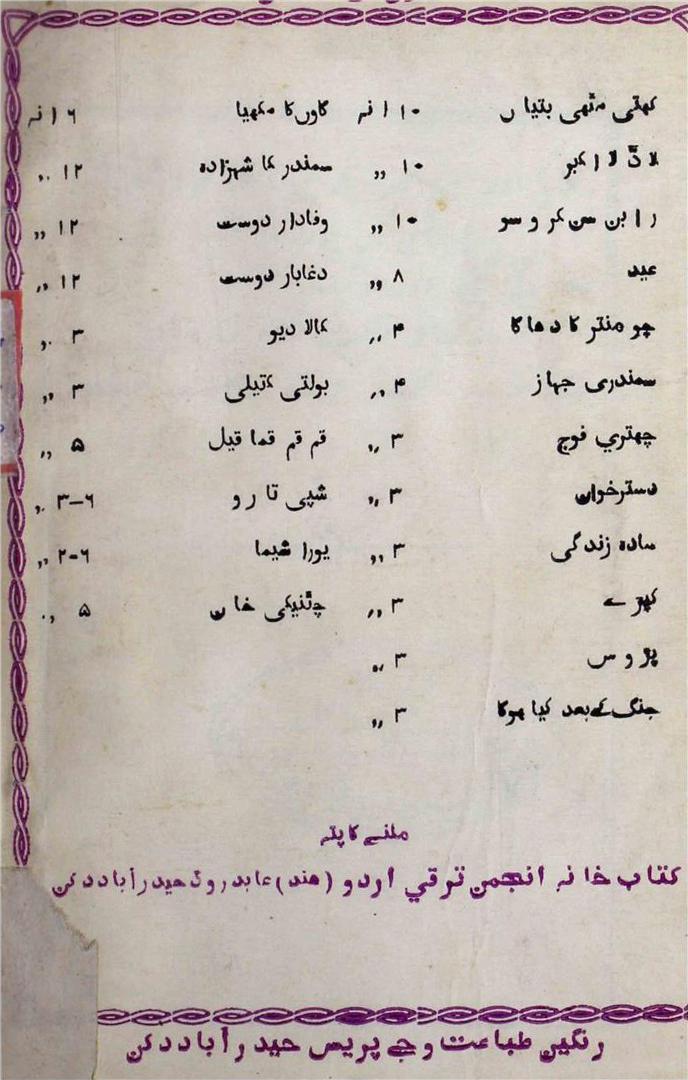 کھٹی مٹھی بتیاں ۱۰ انہ گاوں کا مکھیا ۶ انہ
لاڈلا اکبر ۱۰ ,, سمندر کا شہزادہ ۱۲ ,,
رابن سن کروسو ۱۰ ,, وفادار دوست ۱۲ ,,
عید ۸ ,, دغاباز دوست ۱۲ ,,
چو منتر کا دھاگا ۴ ,, کالا دیو ۳ ,,
سمندری جہاز ۴ ,, بولتی کتیلی ۳ ,,
چھتري فوج ۳ ,, قم قم قماقیل ۵ ,,
دسترخوان ۳ ,, شپی تارو ۶–۳ ,,
سادہ زندگی ۳ ,, یورا شیما ۶-۲ ,,
کپڑے ۳ ,, چٹنیکی خان ۵ ,,
پڑوس ۳ ,,
جنگ کے بعد کیا ہوگا ۳ ,,
ملنے کا پتہ
کتاب خانہ انجمن ترقي اردو (ھند) عابد روڈ حیدرآباد دکن
رنگین طباعت وجے پریس حیدرآباد دکن